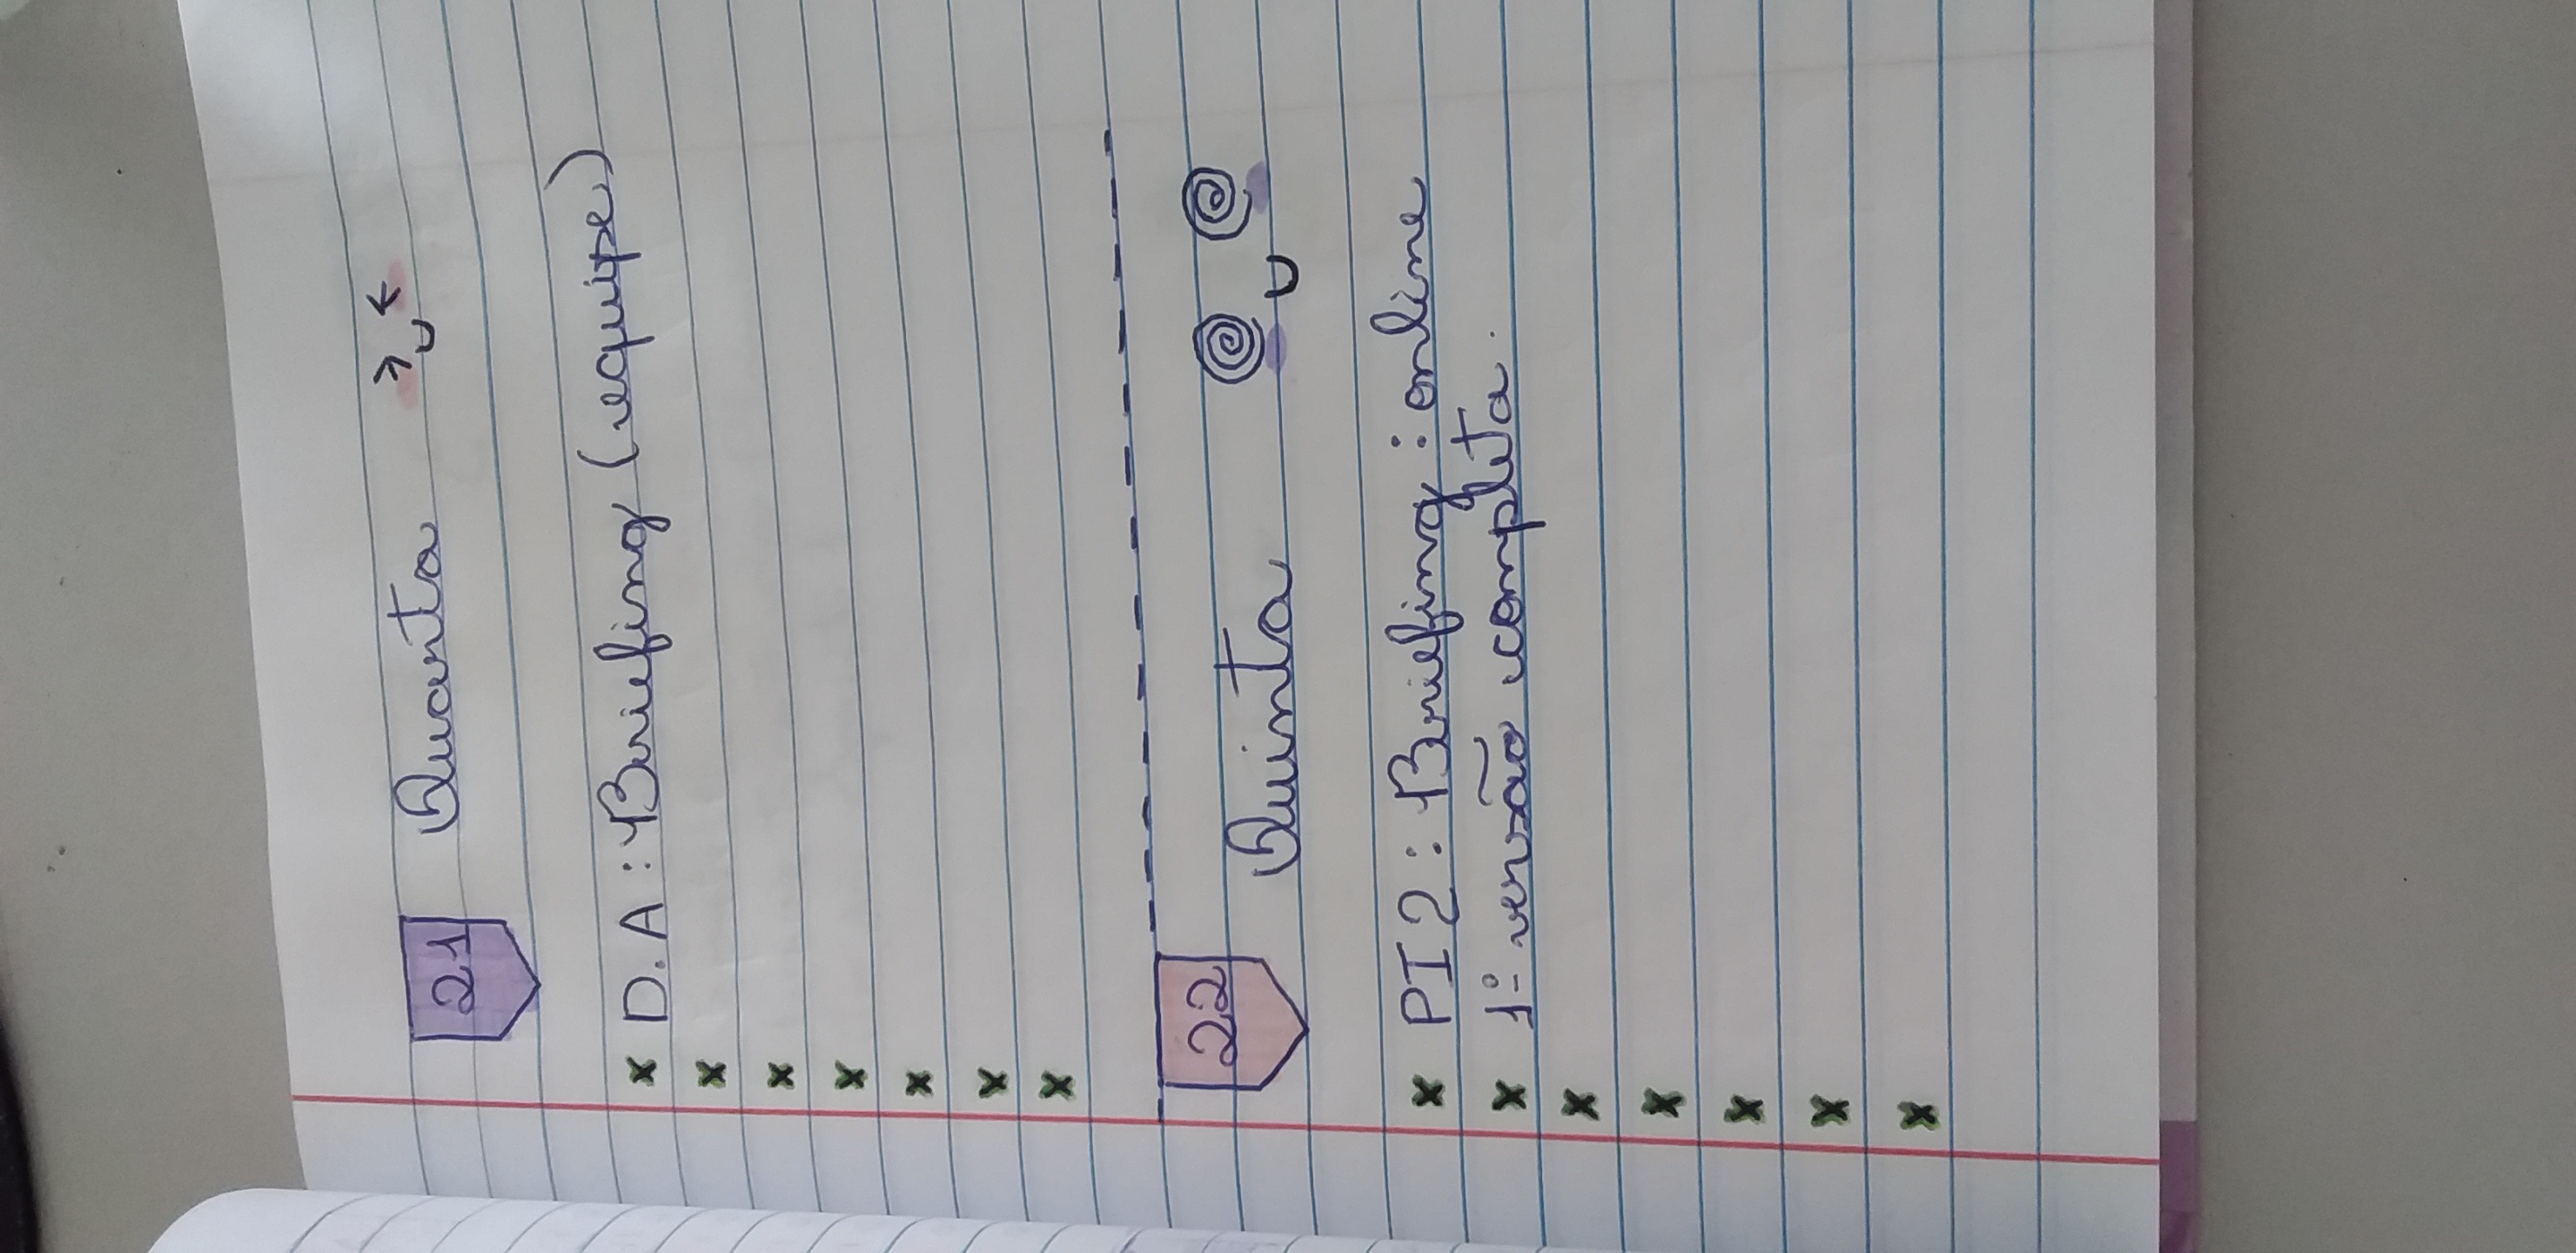 21 Quarta
x D.A : Briefing (equipe)
x
x
x
x
x
x
22 Quinta
x PI2 : Briefing : online
x 1º versão completa.
x
x
x
x
x